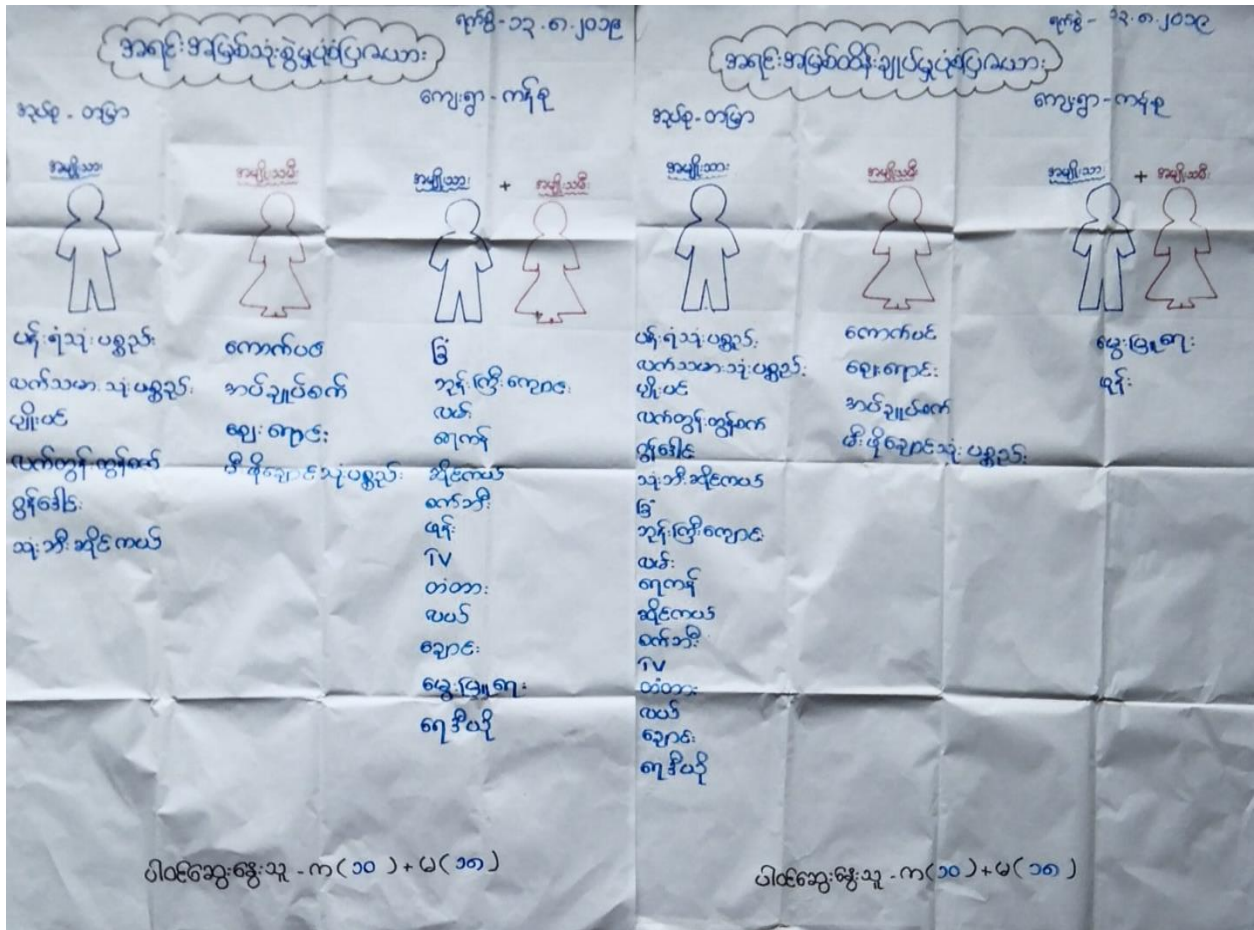 ရက်စွဲ - ၁၃.၈.၂၀၁၉
အရင်းအမြစ်သုံးစွဲမှုပုံစံပြဇယား
ကျေးရွာ - ကန်စု
အုပ်စု - တမြာ
အမျိုးသား
အမျိုးသမီး
အမျိုးသား + အမျိုးသမီး
ပန်းရံသုံးပစ္စည်း
လက်သမားသုံးပစ္စည်း
ပျိုးပင်
လက်တွန်းထွန်စက်
ဂွန်ဒေါင်း
သုံးဘီးဆိုင်ကယ်
ကောက်ပင်
အပ်ချုပ်စက်
ဈေးရောင်း
မီးဖိုချောင်သုံးပစ္စည်း
ခြံ
ဘုန်းကြီးကျောင်း
လမ်း
ရေကန်
ဆိုင်ကယ်
စက်ဘီး
ဖုန်း
TV
တံတား
လယ်
ချောင်း
မွေးမြူရေး
ရေဒီယို
ပါဝင်ဆွေးနွေးသူ - က(၁၀)+မ(၁၈)
ရက်စွဲ - ၁၃.၈.၂၀၁၉
အရင်းအမြစ်ထိန်းချုပ်မှုပုံစံပြဇယား
ကျေးရွာ - ကန်စု
အုပ်စု - တမြာ
အမျိုးသား
အမျိုးသမီး
အမျိုးသား + အမျိုးသမီး
ပန်းရံသုံးပစ္စည်း
လက်သမားသုံးပစ္စည်း
ပျိုးပင်
လက်တွန်းထွန်စက်
ဂွန်ဒေါင်း
သုံးဘီးဆိုင်ကယ်
ခြံ
ဘုန်းကြီးကျောင်း
လမ်း
ရေကန်
ဆိုင်ကယ်
စက်ဘီး
TV
တံတား
လယ်
ချောင်း
ရေဒီယို
ကောက်ပင်
ဈေးရောင်း
အပ်ချုပ်စက်
မီးဖိုချောင်သုံးပစ္စည်း
မွေးမြူရေး
ဖုန်း
ပါဝင်ဆွေးနွေးသူ - က(၁၀)+မ(၁၈)